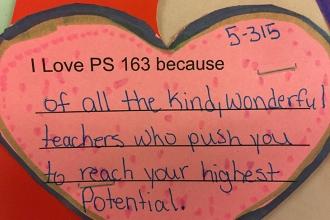 5-315
I Love PS 163 because
of all the kind, wonderful
teachers who push you
to reach your highest
Potential.